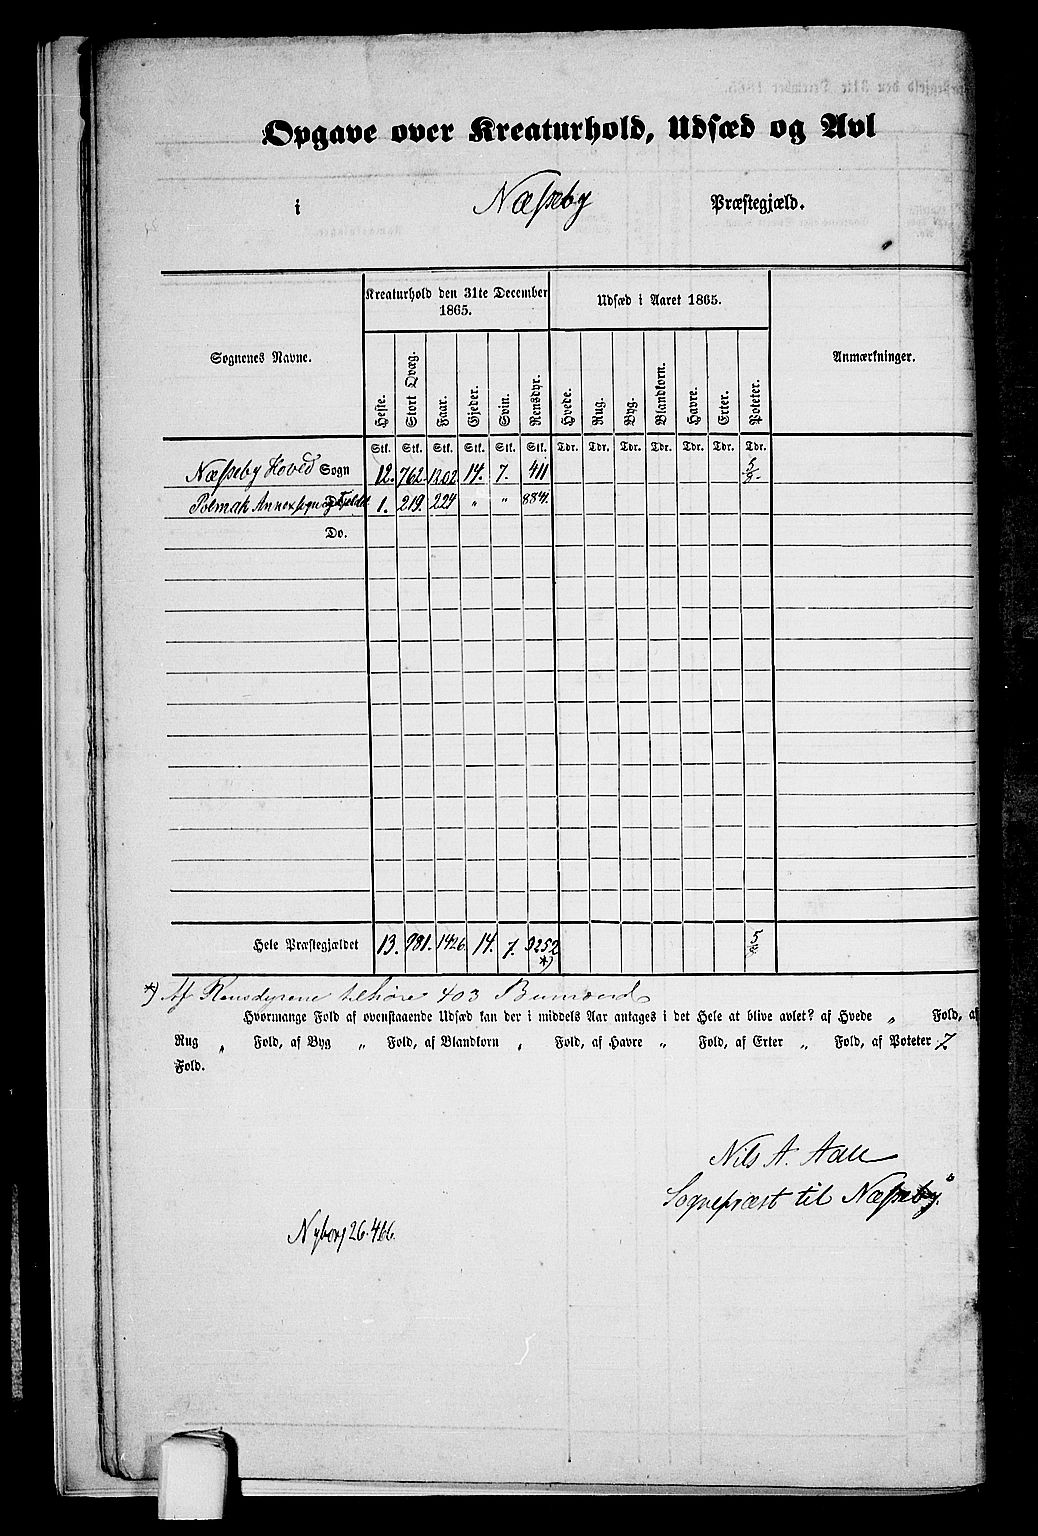 Opgave over Kreaturhold, Udsæd og Avl
i Næsseby Præstegjæld.
Sognenes Navne.
Kreaturhold den 31te December 1865.
Udsæd i Aaret 1865.
Anmærkninger.
Heste. Stort Qvæg. Faar. Gjeder. Svin. Rensdyr. Hvede. Rug. Byg. Blandkorn. Havre. Erter. Poteter.
Stk. Stk. Stk. Stk. Stk. Stk. Tdr. Tdr. Tdr. Tdr. Tdr. Tdr. Tdr.
Næsseby Hoved Sogn 12. 762. 1202 14. 7. 411
Polmak Annexsogn og Fjeldet 1. 219. 224 " " 8841.
Do.
Hele Præstegjældet 13. 981. 1426. 14. 7. 9252 *)
*) Af Rensdyrene tilhøre 403 Bumænd
Hvormange Fold af ovenstaaende Udsæd kan der i middels Aar antages i det Hele at blive avlet? af Hvede " Fold, af
Rug " Fold, af Byg " Fold, af Blandkorn " Fold, af Havre " Fold, af Erter " Fold, af Poteter 7
Fold.
Nils A. Aall
Sognepræst til Næsseby.
Nyborg 26